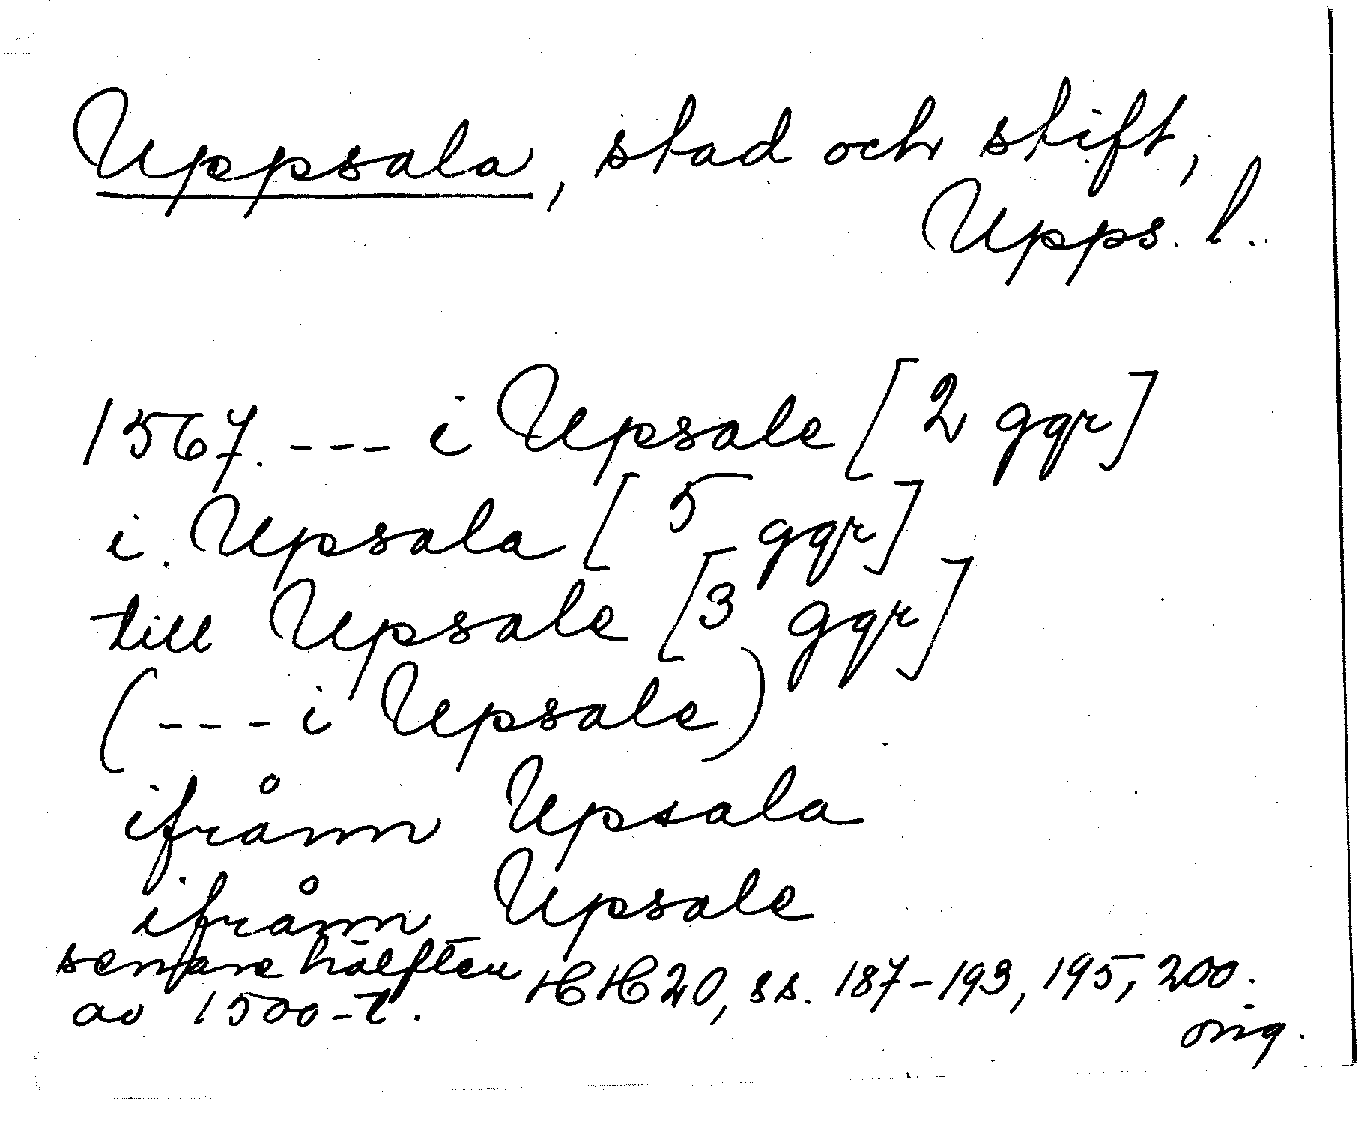 Uppsala, stad och stift,
Upps. l.
1567. --- i Upsale [2 ggr]
i Upsala [5 ggr]
till Upsale [3 ggr]
(--- i Upsale)
ifrånn Upsala
ifrånn Upsale
senare hälften
av 1500-t. HH20, ss. 187-193, 195, 200.
orig.